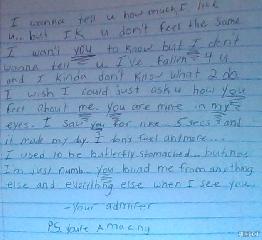 I wanna tell u how much I like
u.. but IK u don't feel the same
I want you to know but I don't
wanna tell u. I've fallen 4 u
and I kinda don't know what 2 do.
I wish I could just ask u how you
feel about me. you are mine in my
eyes. I saw you for like 5 secs and
it made my day. I don't feel anymore...
I used to be butterfly stomached.. but now
I'm just numb. you me from anything
else and everything else when I see you.
-your admirer
PS. you're Amazing